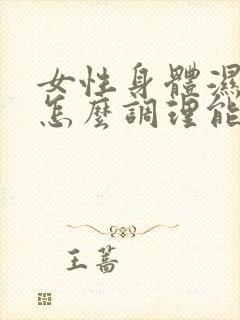 女性身體濕
怎麼調理能
王蔷